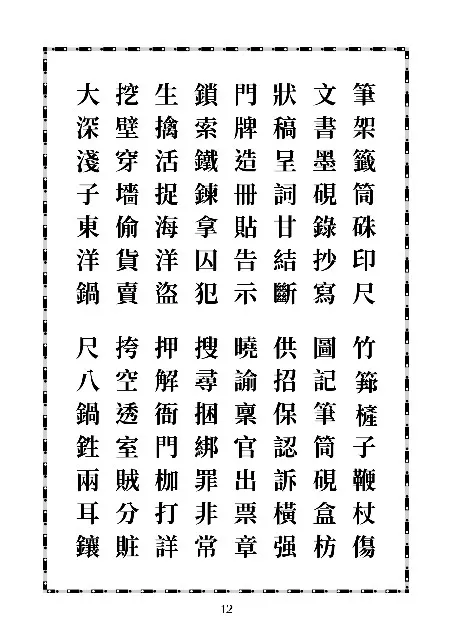 筆架籤筒硃印尺
竹篩槌子鞭杖傷
文書墨硯錄抄寫
圖記筆筒硯盒枋
狀稿呈詞甘結斷
供招保認訴橫强
門牌造冊貼告示
曉諭稟官出票章
鎖索鐵鍊拿囚犯
搜尋捆綁罪非常
生擒活捉海洋盜
押解衙門枷打詳
挖壁穿墻偷貨賣
挎空透室賊分賍
大深淺子東洋鍋
尺八鍋鉎兩耳鑲
12